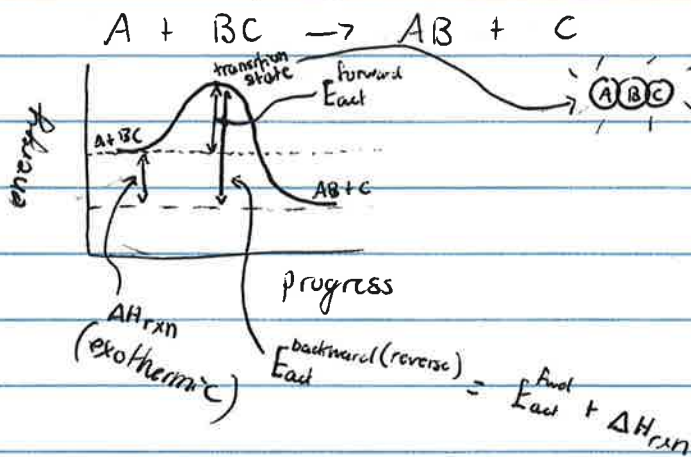 A + BC → AB + C
transition
state
forward
E_act
A B C
A+BC
energy
AB+C
progress
ΔH_rxn
(exothermic)
E_act^backward(reverse) = E_act^fwd + ΔH_rxn